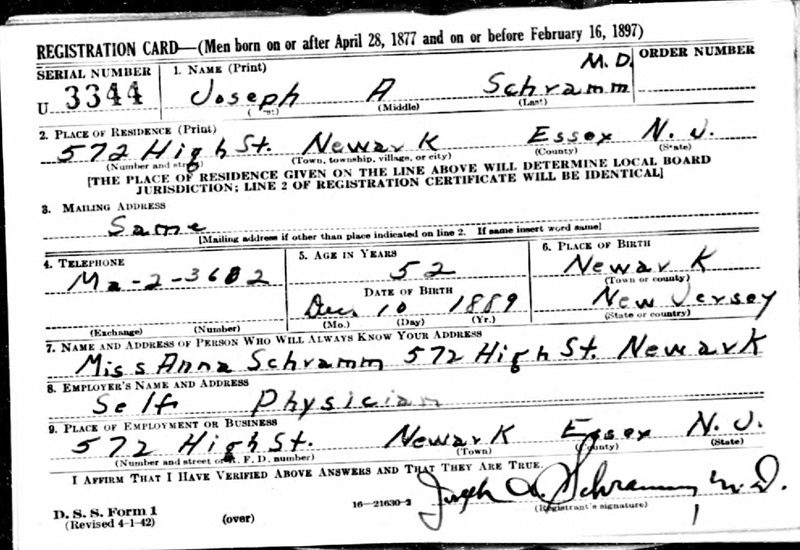 REGISTRATION CARD—(Men born on or after April 28, 1877 and on or before February 16, 1897)
SERIAL NUMBER
U 3344
1. NAME (Print)
Joseph A Schramm M.D.
(Middle) (Last)
ORDER NUMBER
2. PLACE OF RESIDENCE (Print)
572 High St. Newark Essex N. J.
(Number and street) (Town, township, village, or city) (County) (State)
[THE PLACE OF RESIDENCE GIVEN ON THE LINE ABOVE WILL DETERMINE LOCAL BOARD
JURISDICTION; LINE 2 OF REGISTRATION CERTIFICATE WILL BE IDENTICAL]
3. MAILING ADDRESS
Same
[Mailing address if other than place indicated on line 2. If same insert word same]
4. TELEPHONE
Ma-2-3682
(Exchange) (Number)
5. AGE IN YEARS
52
DATE OF BIRTH
Dec 10 1889
(Mo.) (Day) (Yr.)
6. PLACE OF BIRTH
Newark
(Town or county)
New Jersey
(State or country)
7. NAME AND ADDRESS OF PERSON WHO WILL ALWAYS KNOW YOUR ADDRESS
Miss Anna Schramm 572 High St. Newark
8. EMPLOYER'S NAME AND ADDRESS
Self Physician
9. PLACE OF EMPLOYMENT OR BUSINESS
572 High St. Newark Essex N. J.
(Number and street or R. F. D. number) (Town) (County) (State)
I AFFIRM THAT I HAVE VERIFIED ABOVE ANSWERS AND THAT THEY ARE TRUE.
D. S. S. Form 1
(Revised 4-1-42) (over)
16—21630-2
Joseph A. Schramm M.D.
(Registrant's signature)